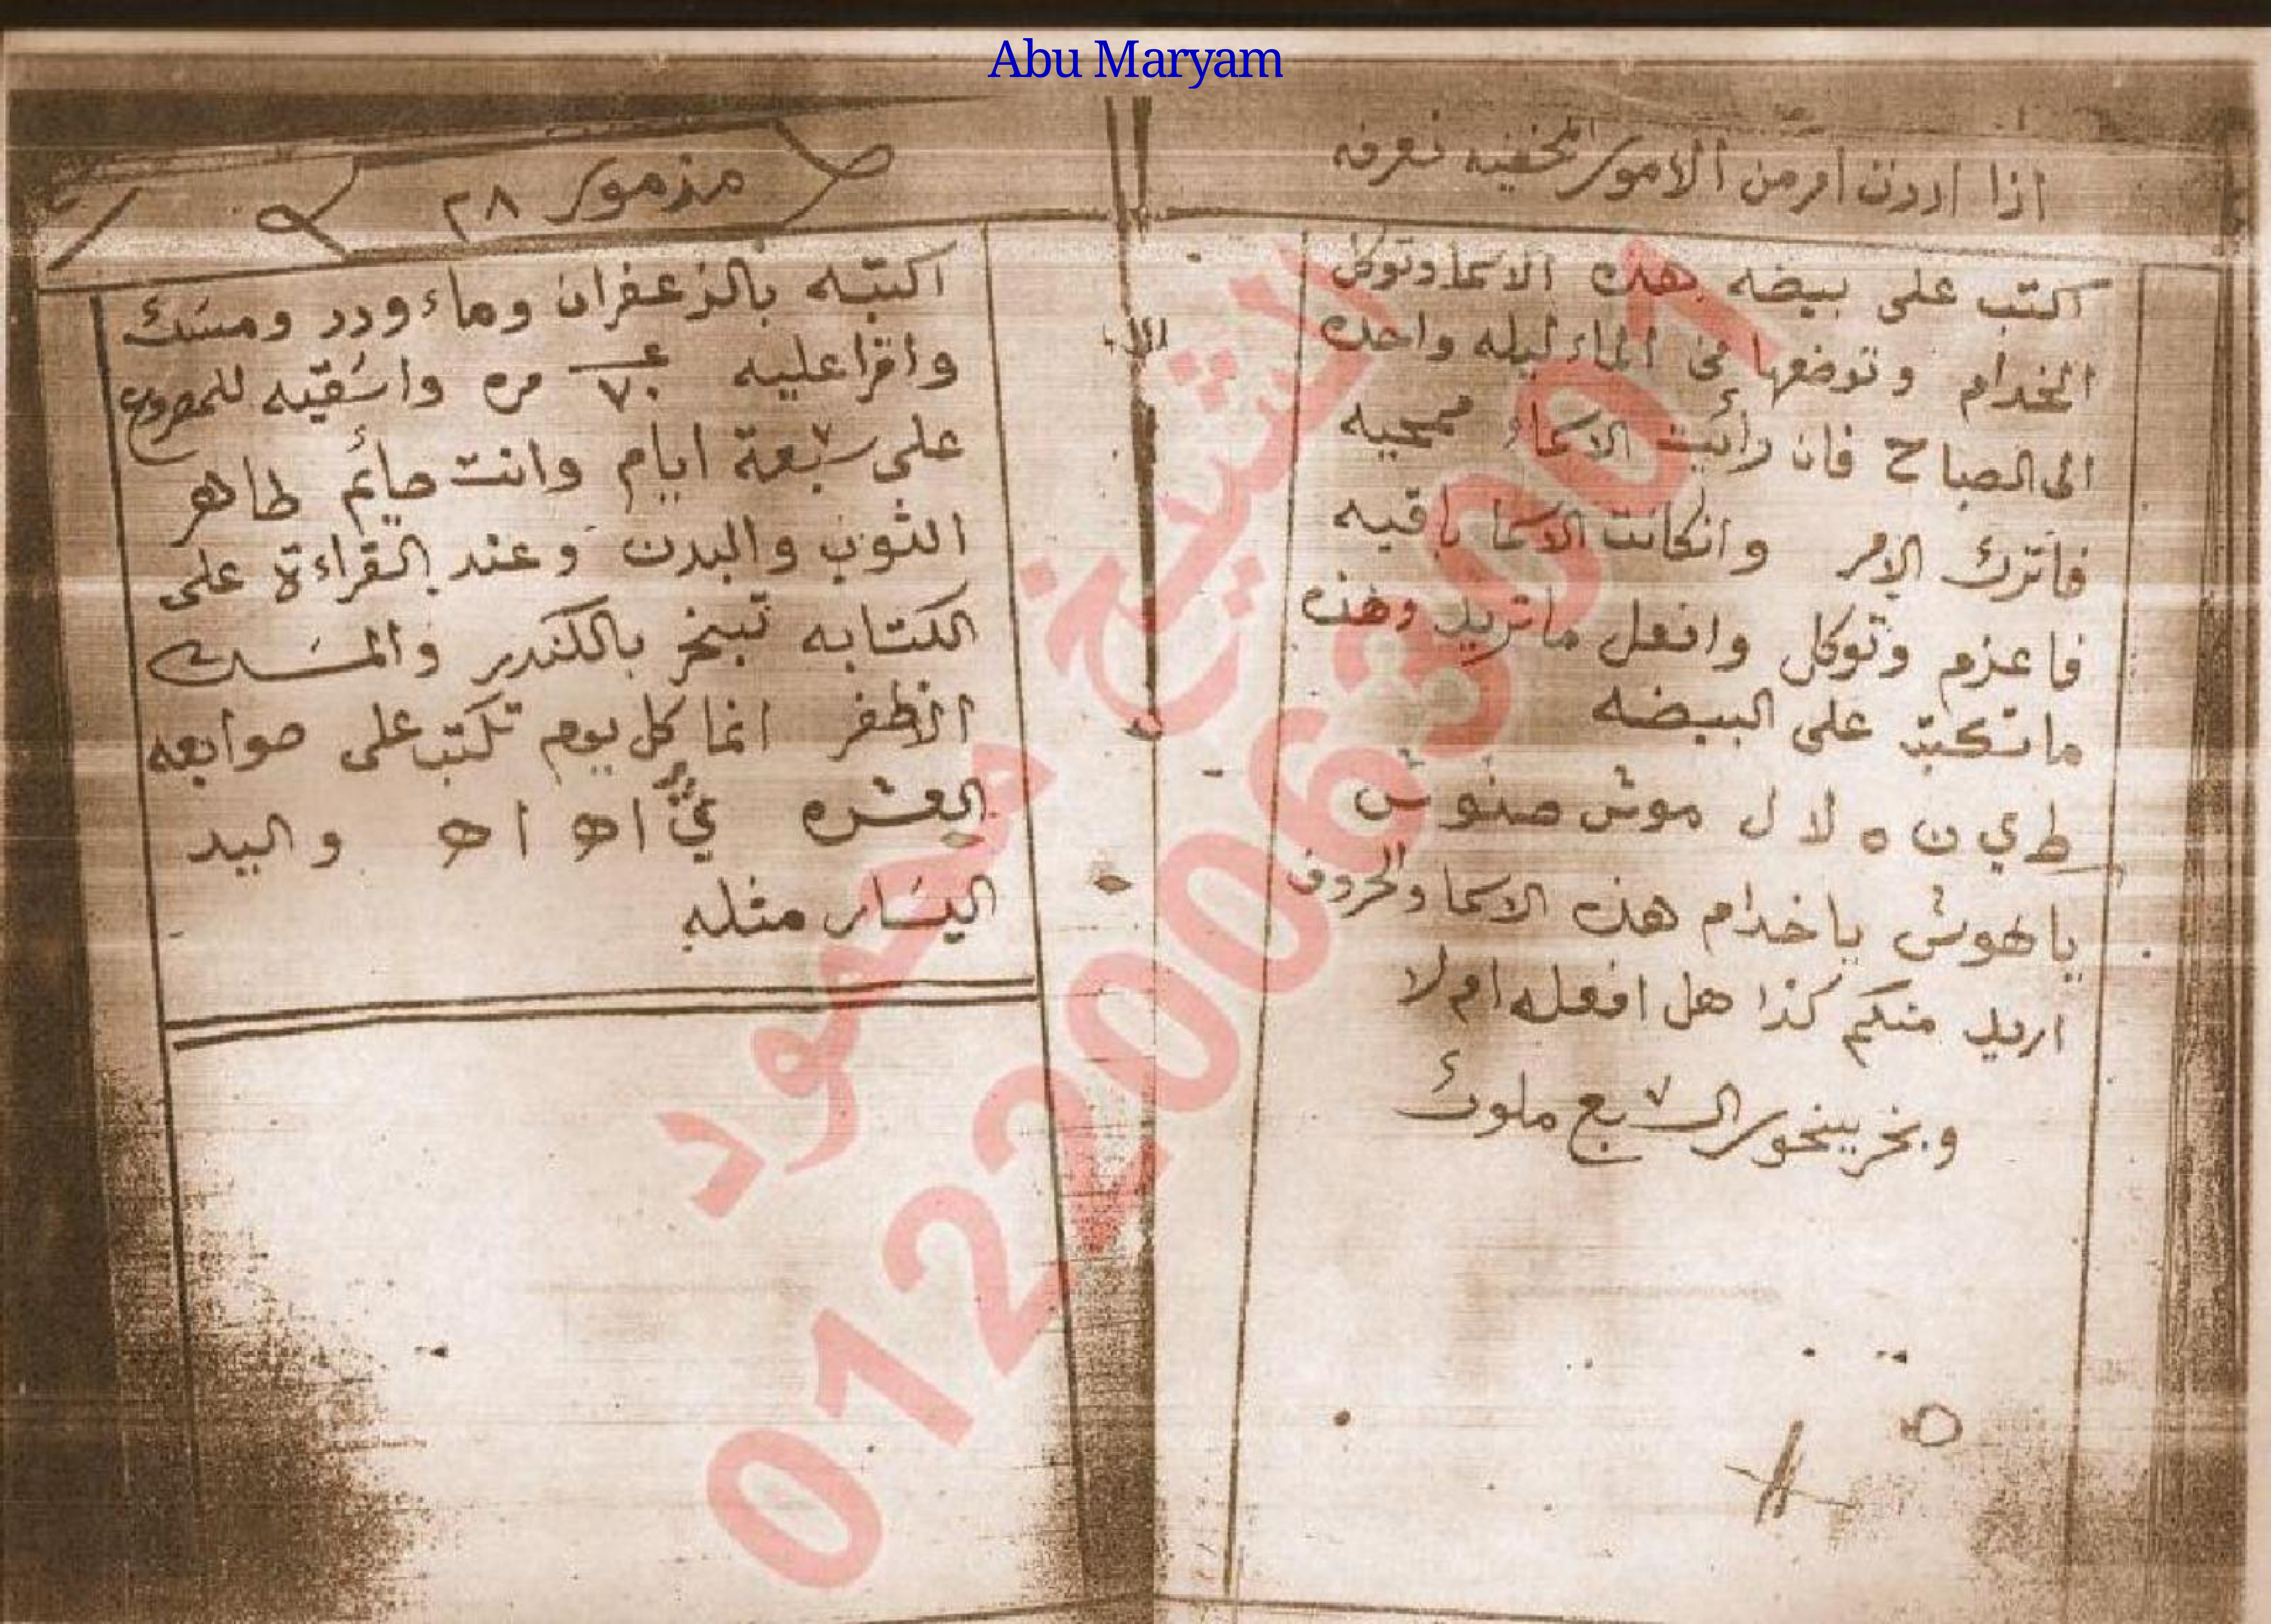 Abu Maryam
اذا اردت امر من الامور المخفيه تعرفه
اكتب على بيضه هذه الاسما وتوكل
الخدام وتوضعها في الماء ليله واحده
الى الصباح فان رأيت الاسماء ممحيه
فاترك الامر وانكانت الاسما باقيه
فاعزم وتوكل وافعل ماتريد وهذه
ماتكتب على البيضه
ط ي ن ه لا ل موش صنوش
ياهوش ياخدام هذه الاسما والحروف
اريد منكم كذا هل افعله ام لا
وبخر ببخور السبع ملوك
مزمور ٢٨
اكتبه بالزعفران وماء ورد ومسك
واقرا عليه ٧٠ مره واسقيه للمصروع
على سبعة ايام وانت صائم طاهر
الثوب والبدن وعند القراءة على
الكتابه تبخر بالكندر والمسك
الاظفر انما كل يوم تكتب على صوابعه
العشره اه اه ا ه واليد
اليسار مثله
الشيخ محمود
01220063001